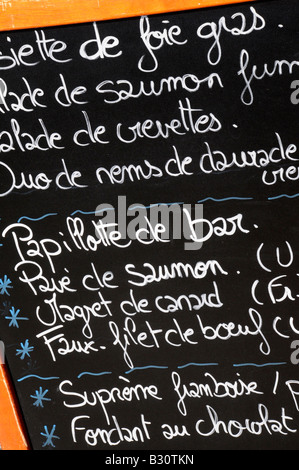 siette de foie gras.
lade de saumon fum
alade de crevettes.
Duo de nems de daurade
crev
Papillotte de bar.
Pavé de saumon. (
Magret de canard (Fr
Faux-filet de boeuf (
Suprême framboise /
Fondant au chocolat
alamy
B30TKN
www.alamy.com